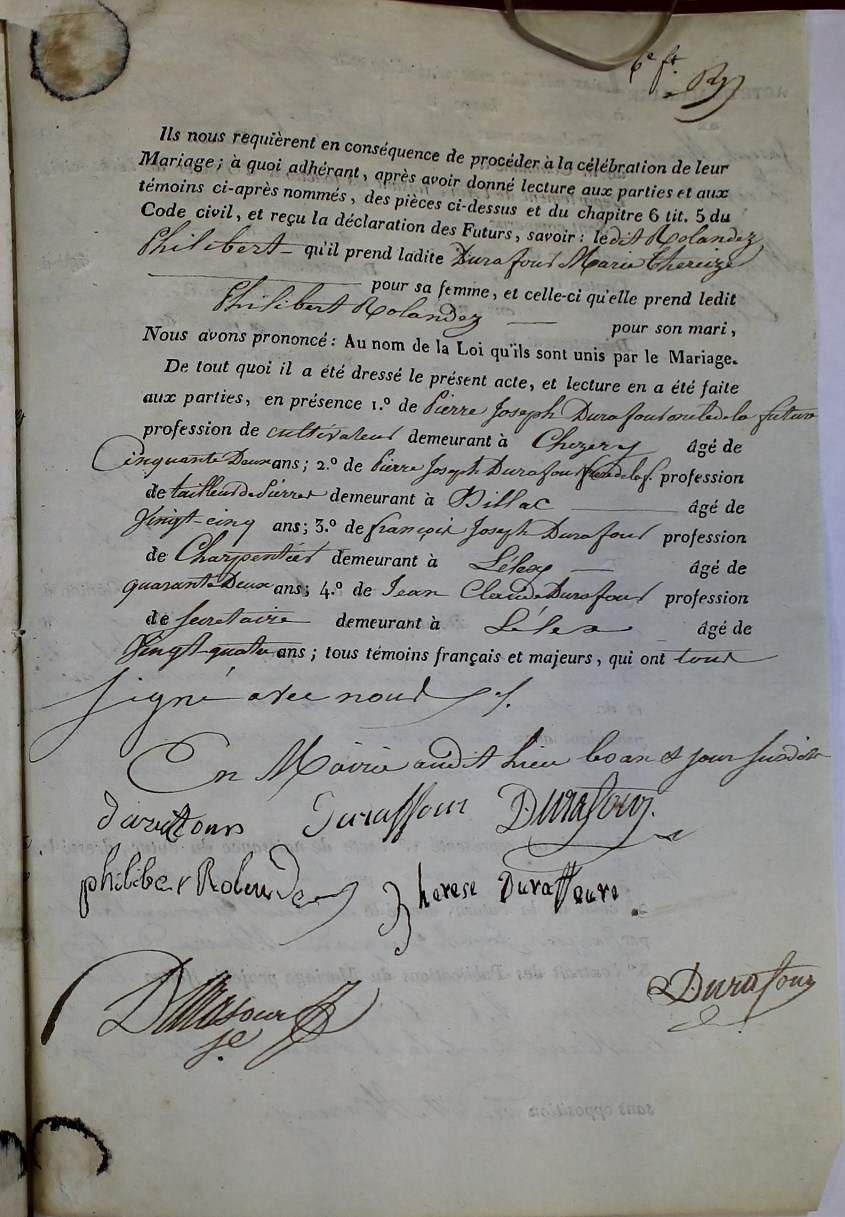 6e ft.
Ils nous requièrent en conséquence de procéder à la célébration de leur
Mariage; à quoi adhérant, après avoir donné lecture aux parties et aux
témoins ci-après nommés, des pièces ci-dessus et du chapitre 6 tit. 5 du
Code civil, et reçu la déclaration des Futurs, savoir: ledit Rolandez
Philibert qu'il prend ladite Durafour Marie thereize
pour sa femme, et celle-ci qu'elle prend ledit
Philibert Rolandez pour son mari,
Nous avons prononcé: Au nom de la Loi qu'ils sont unis par le Mariage.
De tout quoi il a été dressé le présent acte, et lecture en a été faite
aux parties, en présence 1.º de Pierre Joseph Durafour oncle de la future
profession de cultivateur demeurant à Chezery âgé de
Cinquante Deux ans; 2.º de Pierre Joseph Durafour frere de la f. profession
de tailleur de Pierres demeurant à Billac âgé de
Vingt-cinq ans; 3.º de françois Joseph Durafour profession
de Charpentier demeurant à Lélex âgé de
quarante Deux ans; 4.º de Jean Claude Durafour profession
de secretaire demeurant à Lélex âgé de
Vingt-quatre ans; tous témoins français et majeurs, qui ont tous
signé avec nous
En Mairie audit lieu les an et jour susdits
duraffour Duraffour Durafour
philiber Rolande Therese Duraffoure
Durafour
Durafour
sans opposition